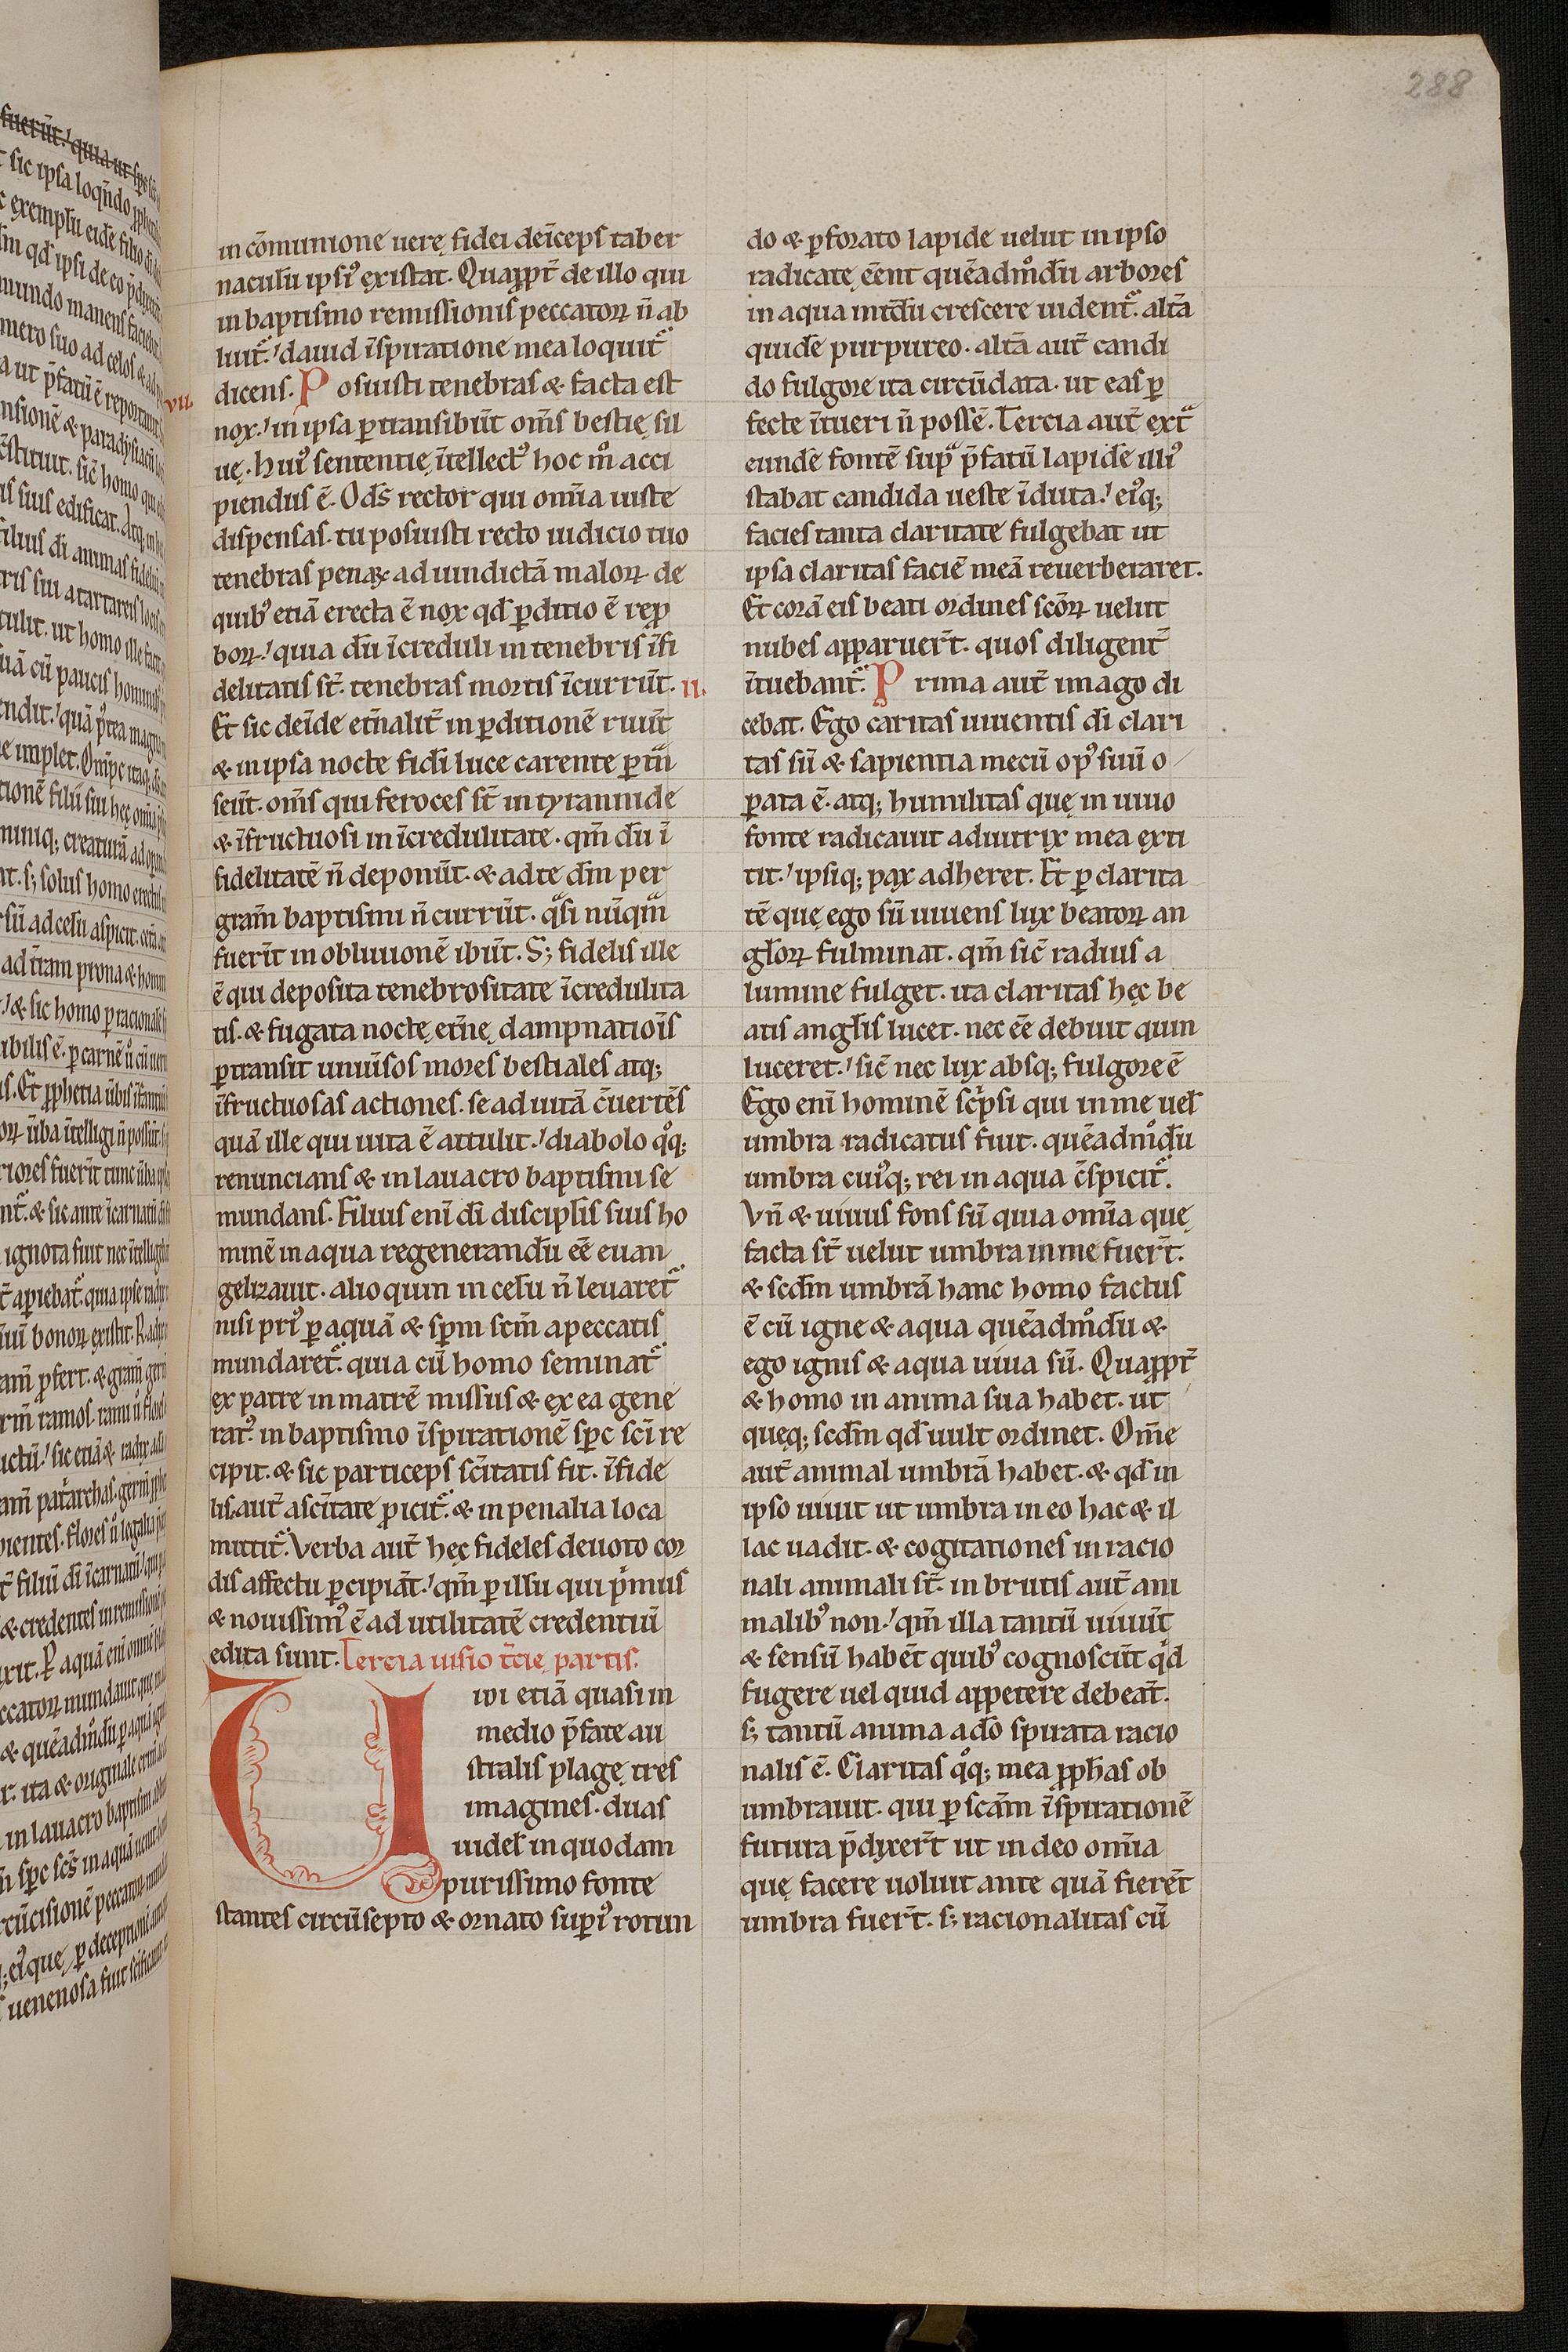 288
in cōmunione uerę fidei deīceps taber
naculū ipsiꝰ existat. Quapp̱t̄ de illo qui
in baptismo remissionis peccatoꝝ n̄ ab
luit᷑.ʼ dauid īspiratione mea loquit᷑
VII.
dicens. Posuisti tenebras & facta est
nox.ʼ in ipsa ꝑtransibūt om̄s bestię sil
uę. Huiꝰ sententię ītellectꝰ hoc mͦ acci
piendus ē. O ds̄ rector qui om̄ia iuste
dispensas. tu posuisti recto iudicio tuo
tenebras penaꝝ ad uindictā maloꝝ de
quibꝰ etiā erecta ē nox qd̄ ꝑditio ē rep̱
boꝝ.ʼ quia dū īcreduli in tenebris īfi
delitatis st̄. tenebras mortis īcurrūt.
II.
Et sic deīde et̄nalit̄ in ꝑditionē ruūt
& in ipsa nocte fidi luce carente ꝑtn̄
seūt. om̄s qui feroces st̄ in tyrannide
& īfructuosi in īcredulitate. qm̄ dū ī
fidelitatē n̄ deponūt. & ad te dm̄ per
gram̄ baptismi n̄ currūt. qͣsi nūqͣm
fuerīt in obliuionē ibūt. S; fidelis ille
ē qui deposita tenebrositate īcredulita
tis. & fugata nocte, et̄nę dampnatiōis
ꝑtransit uniūsos mores bestiales atq;
īfructuosas actiones. se ad uitā c̄uertēs
quā ille qui uita ē attulit.ʼ diabolo qͦq;
renuncians & in lauacro baptismi se
mundans. Filius enī dī discipl̄is suis ho
minē in aqua regenerandū eē euan
gelizauit. alioquin in celū n̄ leuaret᷑
nisi priꝰ ꝑ aquā & spm̄ scm̄ a peccatis
mundaret᷑. quia cū homo seminat᷑
ex patre in matrē missus & ex ea gene
ratꝰ. in baptismo īspirationē spc̄ scī re
cipit. & sic particeps sc̄itatis fit. īfide
lis aut̄ a sc̄itate ꝓicit᷑. & in penalia loca
mittit᷑. Verba aut̄ hęc fideles deuoto cor
dis affectu ꝑcipiāt.ʼ qm̄ ꝑ illū qui pͥmus
& nouissimꝰ ē ad utilitatē credentiū
edita sunt. Tercia uisio t̄cię partis.
Uidi etiā quasi in
medio p̄fate au
stralis plagę tres
imagines. duas
uidel̄ in quodam
purissimo fonte
stantes circūsepto & ornato supiꝰ rotun
do & ꝑforato lapide uelut in ipso
radicate, eēnt quēadmͦdū arbores
in aqua int̄dū crescere uident᷑. alt̄ā
quidē purpureo. alt̄ā aut̄ candi
do fulgore ita circūdata. ut eas ꝑ
fecte ītueri n̄ possē. Tercia aut̄ ext᷑
eundē fontē supͣ p̄fatū lapidē illiꝰ
stabat candida ueste īduta.ʼ eiꝰq;
facies tanta claritate fulgebat ut
ipsa claritas faciē meā reuerberaret.
Et corā eis beati ordines scōꝝ uelut
nubes apparuer̄t. quos diligent̄
ītuebant᷑. Prima aut̄ imago di
cebat. Ego caritas uiuentis dī clari
tas sū & sapientia mecū opꝰ suū o
ꝑata ē. atq; humilitas quę in uiuo
fonte radicauit adiutrix mea exti
tit.ʼ ipsiq; pax adheret. Et ꝑ clarita
tē quę ego sū uiuens lux beatoꝝ an
gl̄oꝝ fulminat. qm̄ sic̄ radius a
lumine fulget. ita claritas hęc be
atis angl̄is lucet. nec eē debuit quin
luceret.ʼ sic̄ nec lux absq; fulgore ē
Ego enī hominē scͥpsi qui in me uel̄
umbra radicatus fuit. quēadmͦdū
umbra cuiꝰq; rei in aqua c̄spicit᷑.
Vn̄ & uiuus fons sū quia om̄ia quę
facta st̄ uelut umbra in me fuer̄t.
& scdm̄ umbrā hanc homo factus
ē cū igne & aqua quēadmͦdū &
ego ignis & aqua uiua sū. Quapp̱t̄
& homo in anima sua habet. ut
quęq; scdm̄ qd̄ uult ordinet. Om̄e
aut̄ animal umbrā habet. & qd̄ in
ipso uiuit ut umbra in eo hac & il
lac uadit. & cogitationes in racio
nali animali st̄. in brutis aut̄ ani
malibꝰ non.ʼ qm̄ illa tantū uiuūt
& sensū habēt quibꝰ cognoscūt qͥd
fugere uel quid appetere debeāt.
s; tantū anima a dō spirata racio
nalis ē. Claritas qͦq; mea p̱phas ob
umbrauit. qui ꝑ scām īspirationē
futura p̄dixer̄t ut in deo om̄ia
quę facere uoluit ante quā fierēt
umbra fuer̄t. s; racionalitas cū